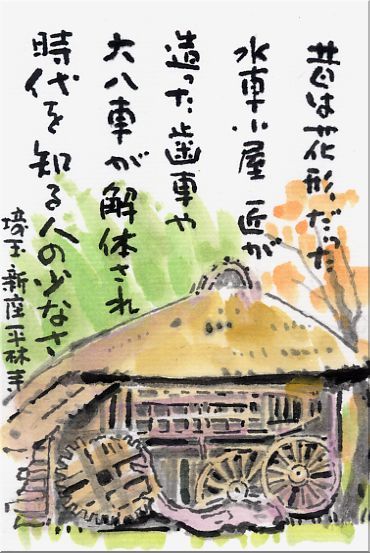 昔は花形だった
水車小屋 匠が
造った歯車や
大八車が解体され
時代を知る人の少なさ
埼玉新座平林寺